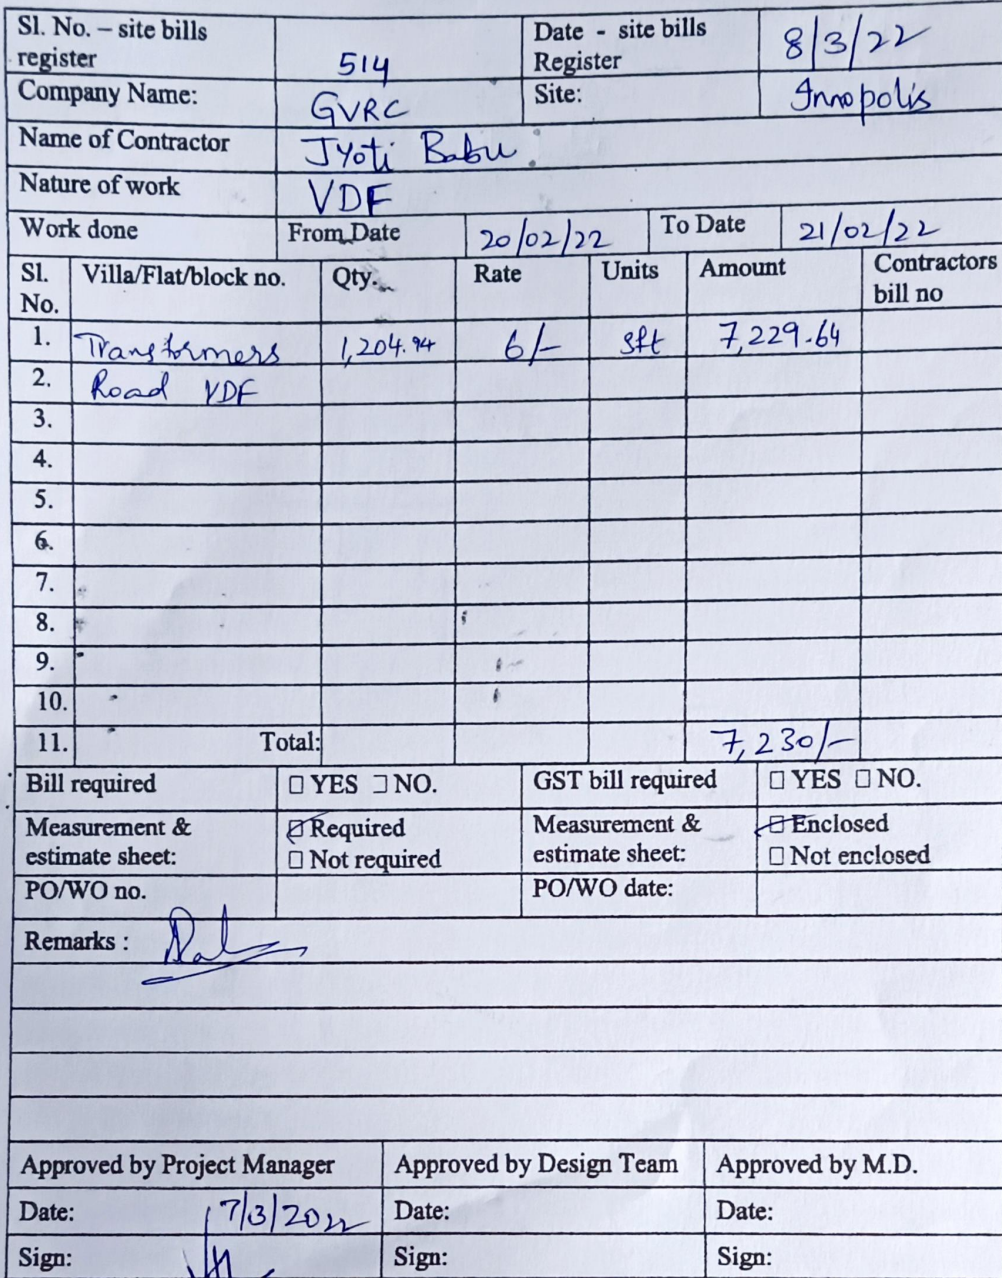 Sl. No. – site bills register 514 Date - site bills Register 8/3/22
Company Name: GVRC Site: Innopolis
Name of Contractor Jyoti Babu
Nature of work VDF
Work done From Date 20/02/22 To Date 21/02/22
Sl. No. Villa/Flat/block no. Qty. Rate Units Amount Contractors bill no
1. Transformers 1,204.94 6/- sft 7,229.64
2. Road VDF
3.
4.
5.
6.
7.
8.
9.
10.
11. Total: 7,230/-
Bill required □ YES □ NO. GST bill required □ YES □ NO.
Measurement & estimate sheet: ☑ Required □ Not required Measurement & estimate sheet: ☑ Enclosed □ Not enclosed
PO/WO no. PO/WO date:
Remarks :
Approved by Project Manager Approved by Design Team Approved by M.D.
Date: 7/3/2022 Date: Date:
Sign: Sign: Sign: